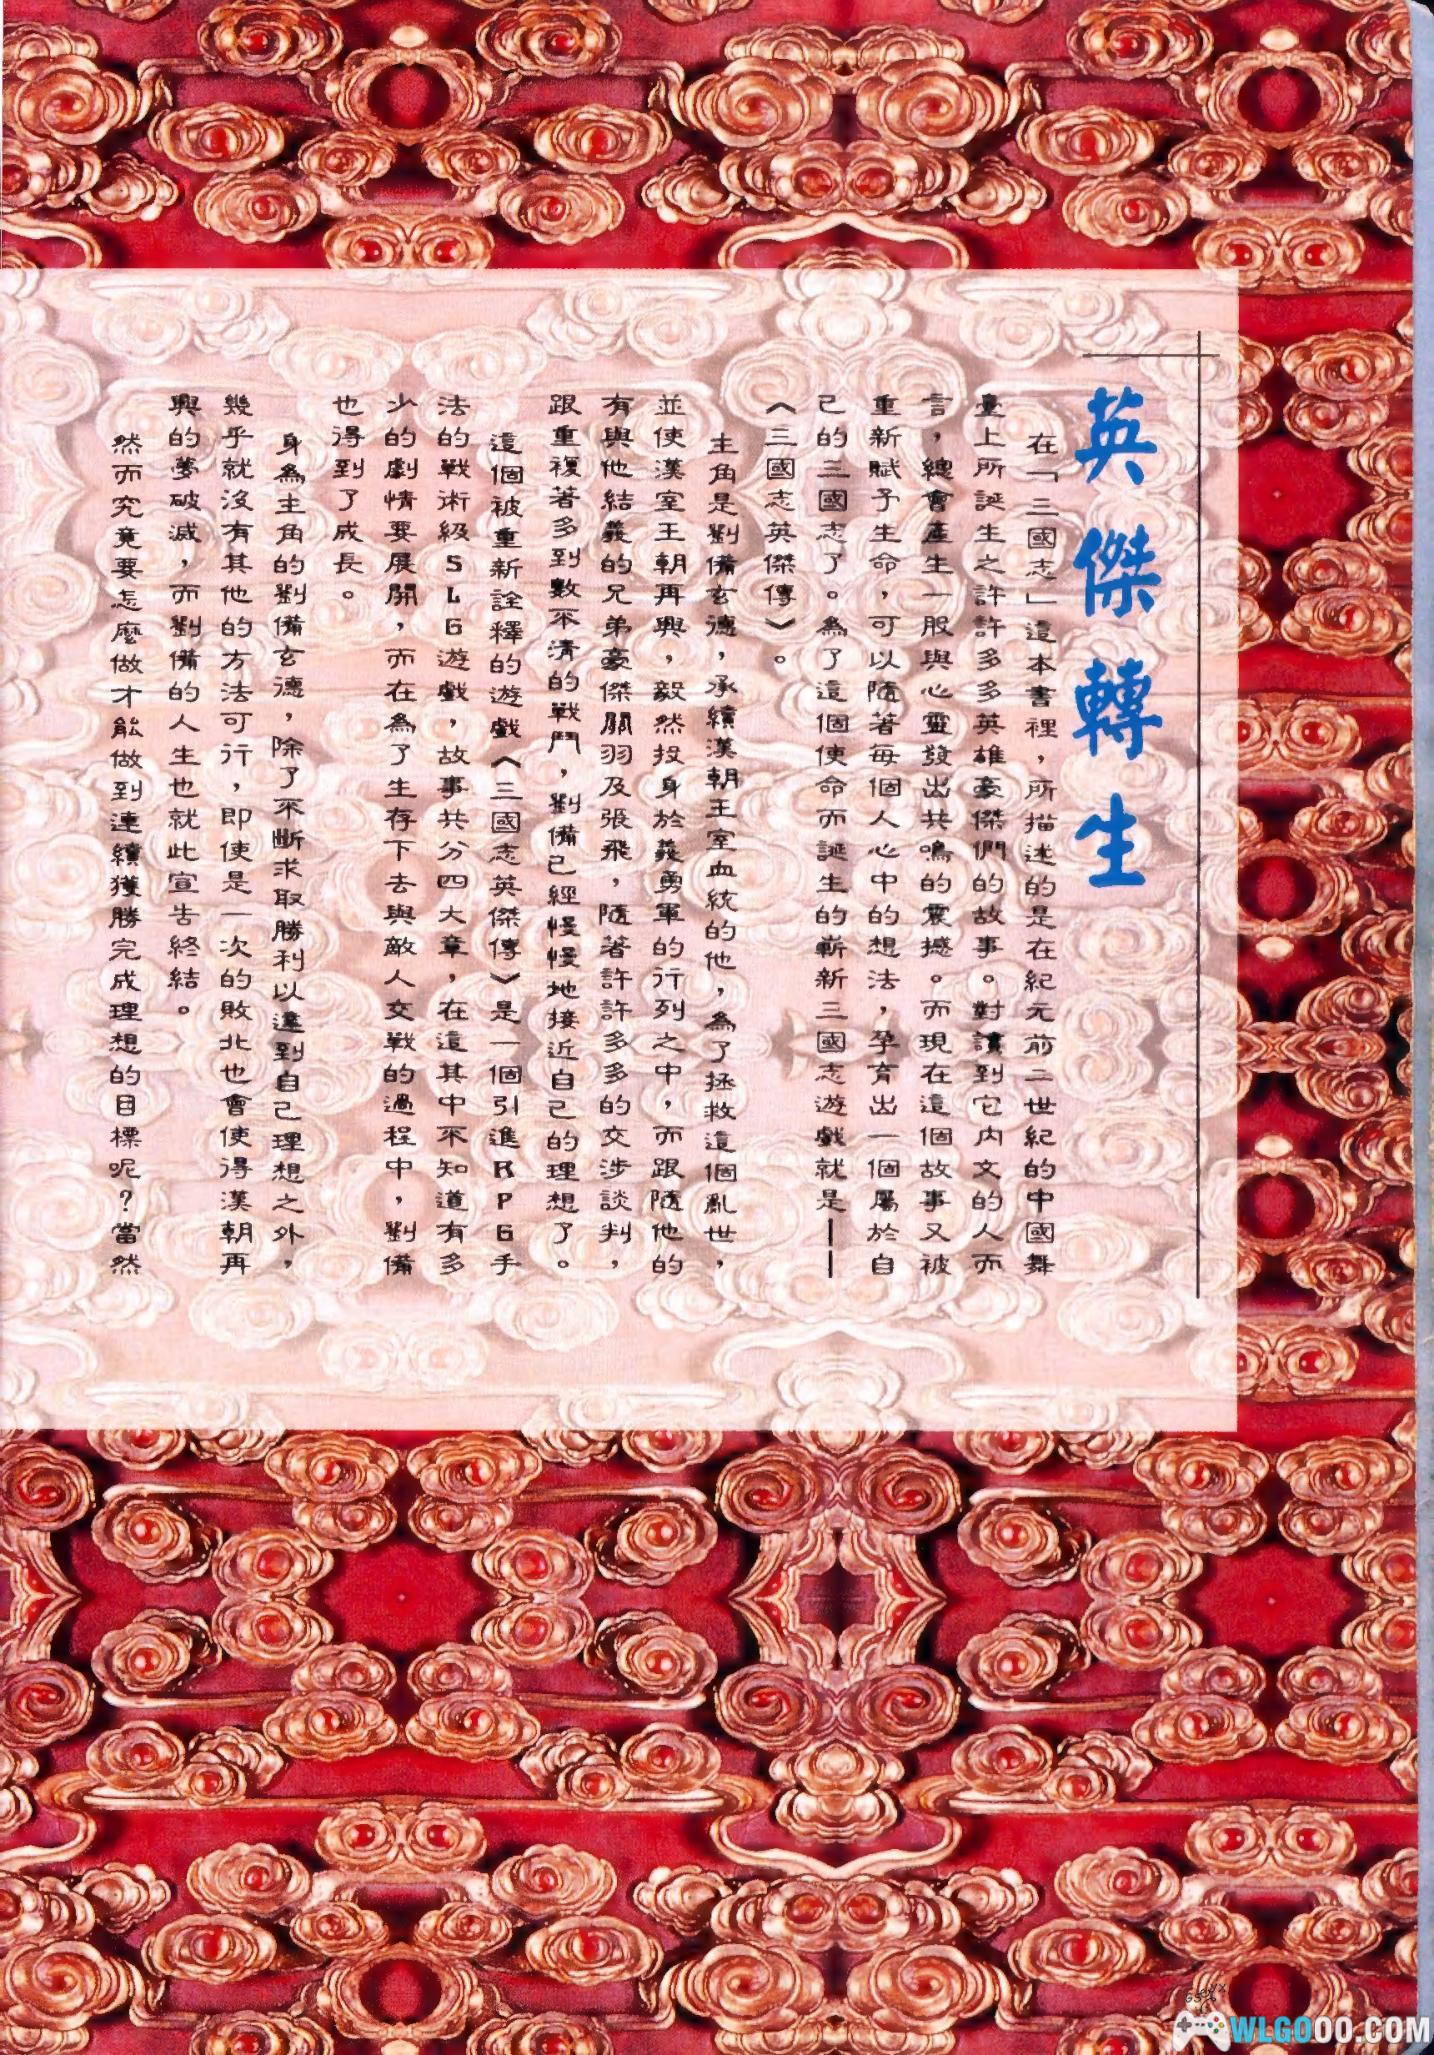 英傑轉生
在「三國志」這本書裡，所描述的是在紀元前二世紀的中國舞
臺上所誕生之許許多多英雄豪傑們的故事。對讀到它內文的人而
言，總會產生一股與心靈發出共鳴的震撼。而現在這個故事又被
重新賦予生命，可以隨著每個人心中的想法，孕育出一個屬於自
己的三國志了。為了這個使命而誕生的嶄新三國志遊戲就是——
《三國志英傑傳》。
主角是劉備玄德，承續漢朝王室血統的他，為了拯救這個亂世，
並使漢室王朝再興，毅然投身於義勇軍的行列之中，而跟隨他的
有與他結義的兄弟豪傑關羽及張飛，隨著許許多多的交涉談判，
跟重複著多到數不清的戰鬥，劉備己經慢慢地接近自己的理想了。
這個被重新詮釋的遊戲《三國志英傑傳》是一個引進RPG手
法的戰術級SLG遊戲，故事共分四大章，在這其中不知道有多
少的劇情要展開，而在為了生存下去與敵人交戰的過程中，劉備
也得到了成長。
身為主角的劉備玄德，除了不斷求取勝利以達到自己理想之外，
幾乎就沒有其他的方法可行，即使是一次的敗北也會使得漢朝再
興的夢破滅，而劉備的人生也就此宣告終結。
然而究竟要怎麼做才能做到連續獲勝完成理想的目標呢？當然
WLGOOO.COM